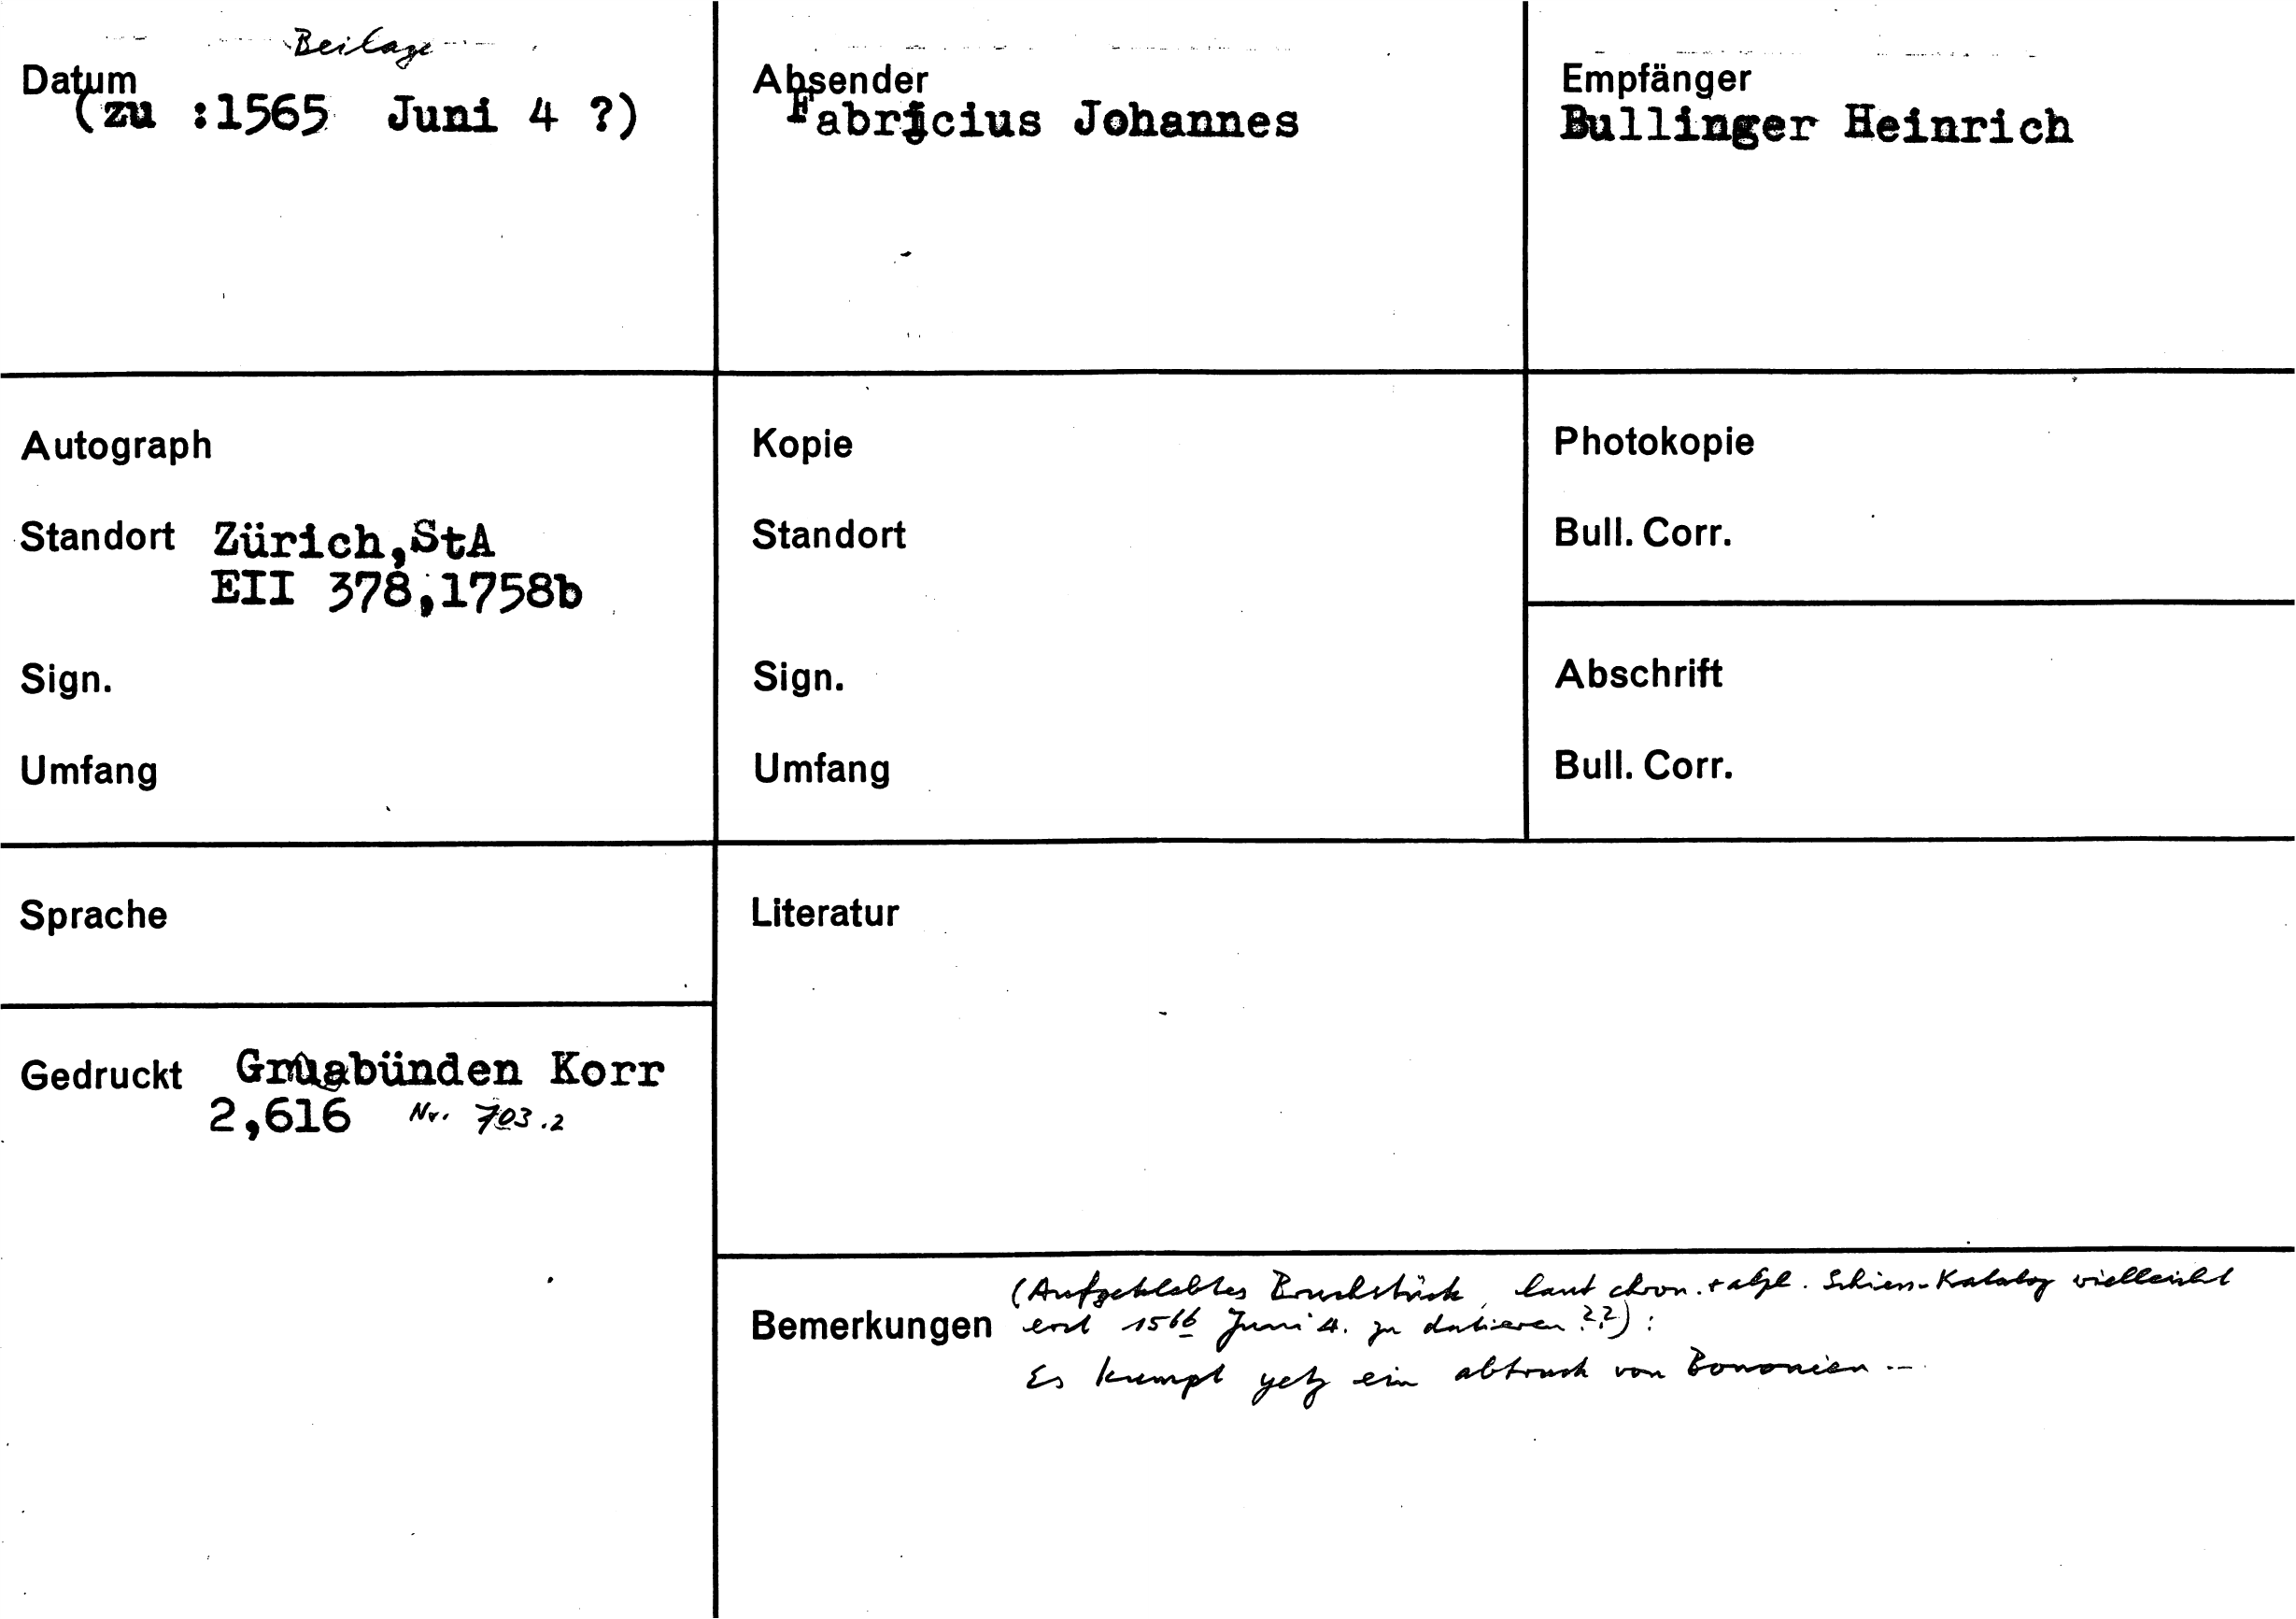 Beilage
Datum
(zu :1565 Juni 4 ?)
Absender
Fabricius Johannes
Empfänger
Bullinger Heinrich
Autograph
Standort Zürich,StA
EII 378,1758b
Sign.
Umfang
Kopie
Standort
Sign.
Umfang
Photokopie
Bull. Corr.
Abschrift
Bull. Corr.
Sprache
Gedruckt Graubünden Korr
2,616 Nr. 703.2
Literatur
Bemerkungen
(Aufgeklebtes Bruchstück, laut chron. + alph. Schiess-Katalog vielleicht
erst 1566 Juni 4. zu datieren ??) :
Es kumpt yetz ein abtruck von Bononien ---